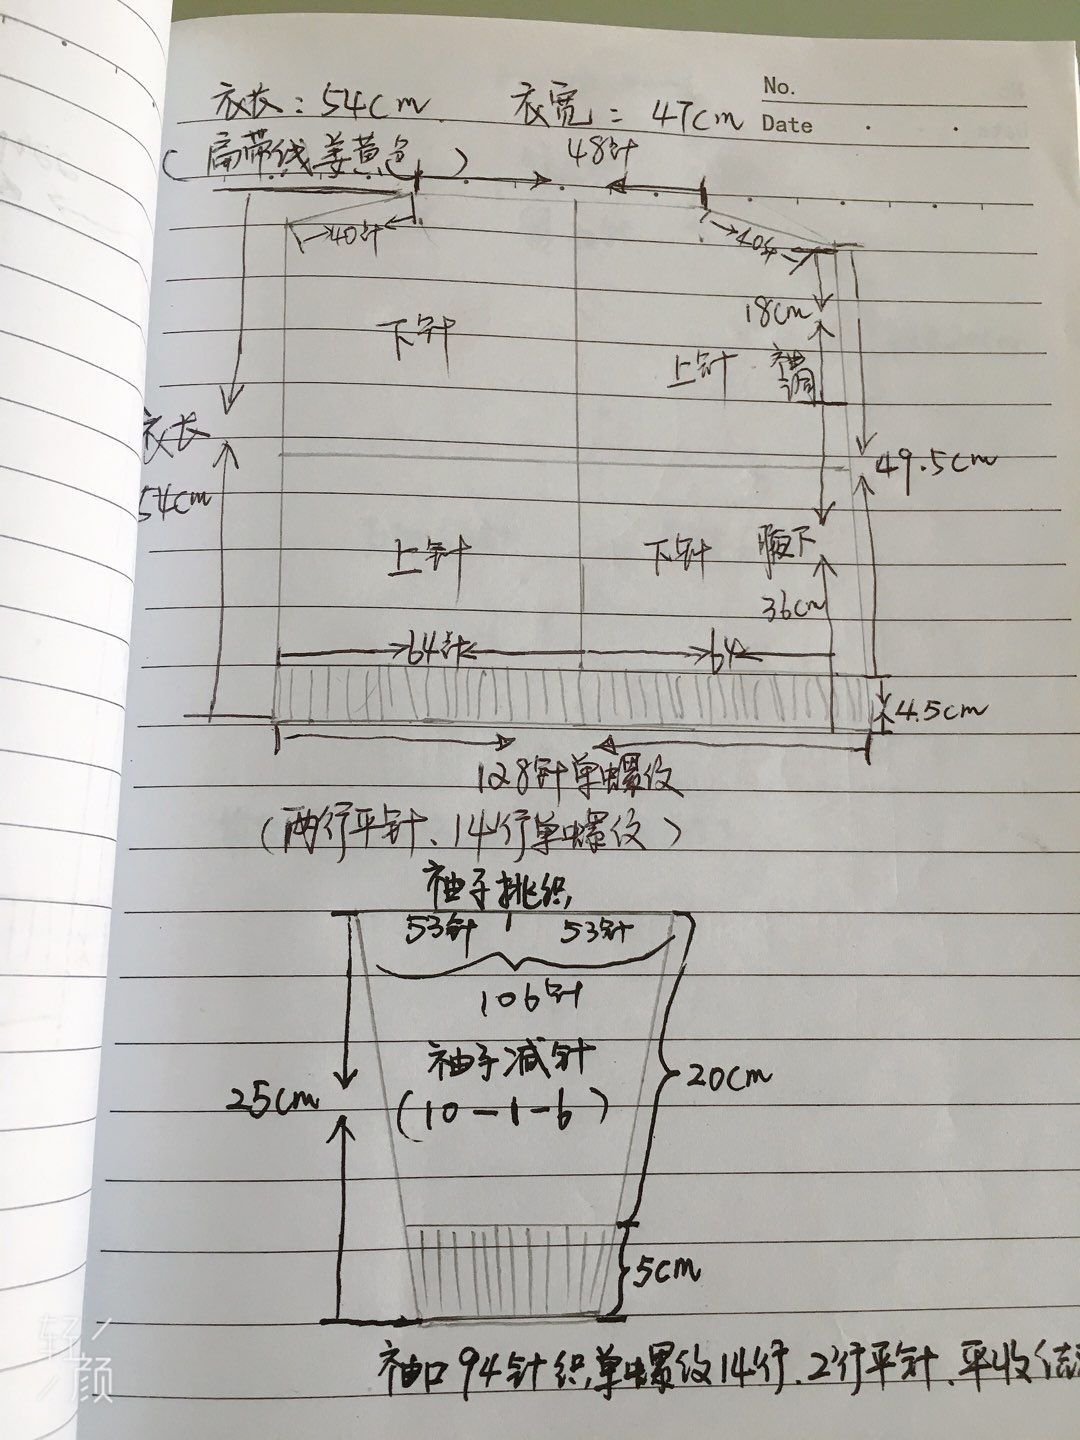 No.
衣长:54cm 衣宽:47cm Date
(扁带线姜黄色) 48针
40针 40针
18cm
下针 上针 袖洞
衣长 49.5cm
54cm
上针 下针 腋下
36cm
64针 64
4.5cm
128针单螺纹
(两行平针、14行单螺纹)
袖子挑织
53针 53针
106针
袖子减针
25cm (10-1-6) 20cm
5cm
袖口94针织单螺纹14行、2行平针、平收
轻颜